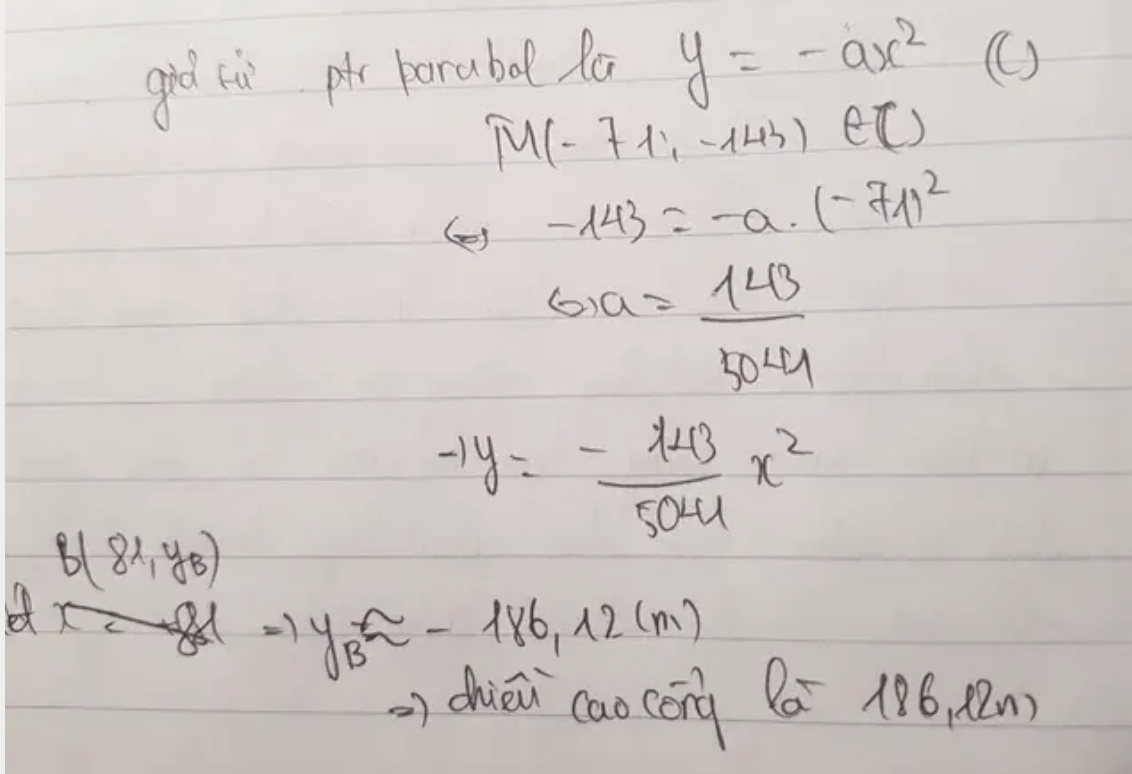 giả sử ptr parabol là y = - ax² (C)
M(- 71; -143) ∈ (C)
⇔ -143 = -a. (-71)²
⇔ a = 143/5041
→ y = - 143/5041 x²
B(81, y_B)
x = 81 ⇒ y_B ≈ - 186,12 (m)
⇒ chiều cao cổng là 186,12m